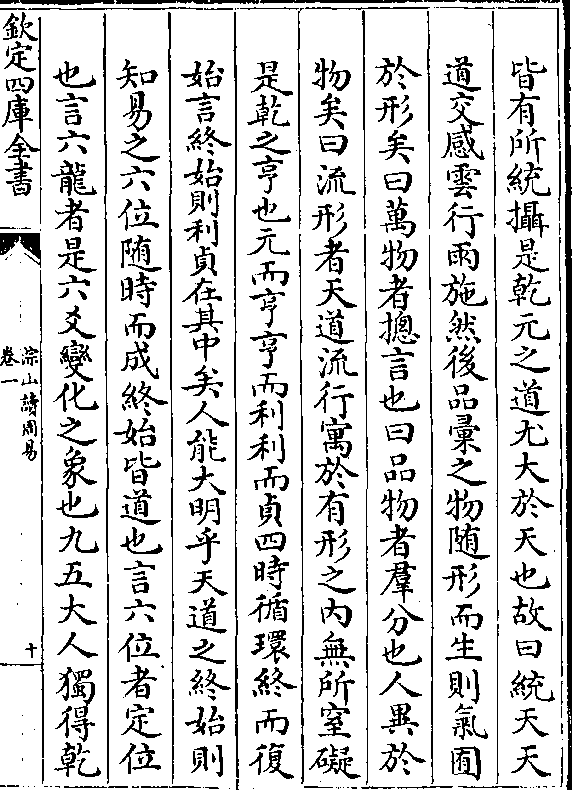 皆有所統攝是乾元之道尤大於天也故曰統天天
道交感雲行雨施然後品彚之物随形而生則氣囿
於形矣曰萬物者摠言也曰品物者羣分也人異於
物矣曰流形者天道流行寓於有形之内無所窒礙
是乾之亨也元而亨亨而利利而貞四時循環終而復
始言終始則利貞在其中矣人能大明乎天道之終始則
知易之六位随時而成終始皆道也言六位者定位
也言六龍者是六爻變化之象也九五大人獨得乾
欽定四庫全書
淙山讀周易
卷一
十